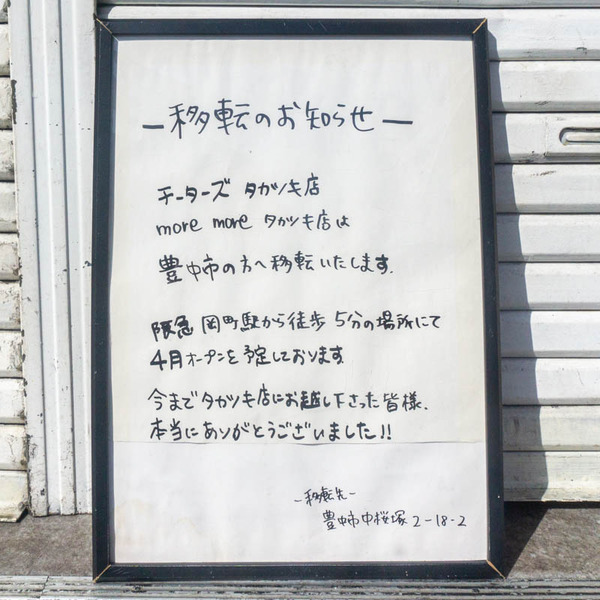 ー移転のお知らせー
チーターズ タカツキ店
more more タカツキ店は
豊中市の方へ移転いたします。
阪急 岡町駅から徒歩 5分の場所にて
4月オープンを予定しております。
今までタカツキ店にお越し下さった皆様、
本当にありがとうございました!!
ー移転先ー
豊中市中桜塚 2-18-2